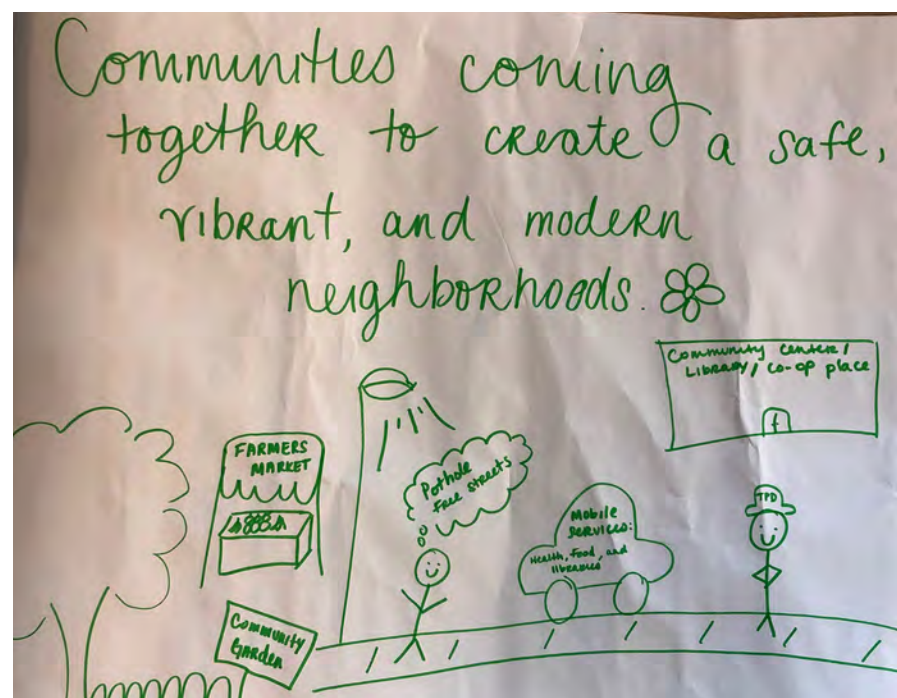 Communities coming
together to create a safe,
vibrant, and modern
neighborhoods.
Community Center/
Library/co-op place
FARMERS
MARKET
Pothole
Free Streets
Mobile
Services:
Health, Food, and
libraries
TPD
Community
Garden